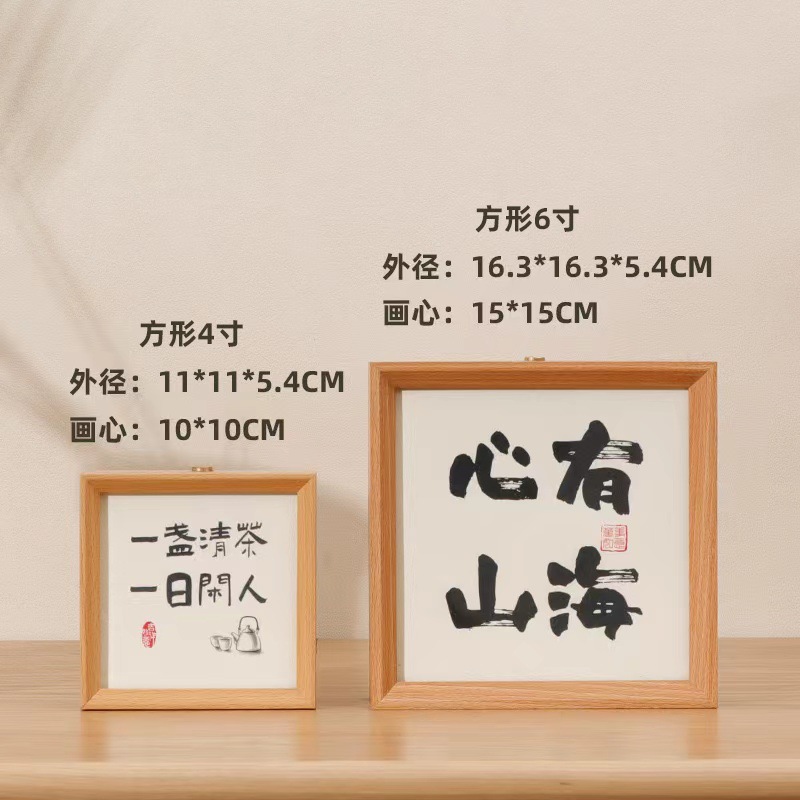 方形4寸
外径：11*11*5.4CM
画心：10*10CM
一盏清茶
一日閑人
方形6寸
外径：16.3*16.3*5.4CM
画心：15*15CM
心有
山海